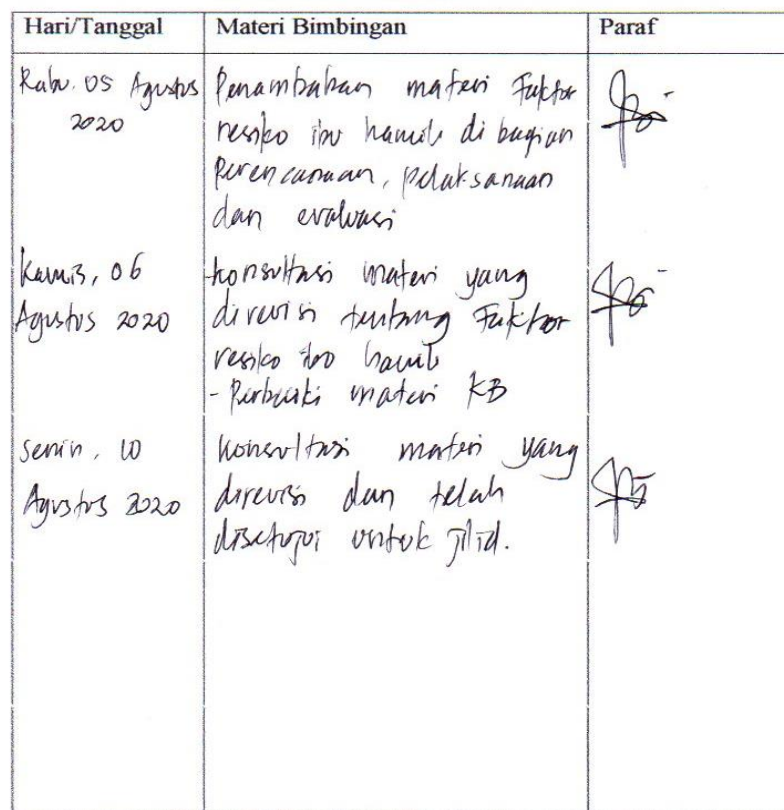 Hari/Tanggal Materi Bimbingan Paraf
Rabu, 05 Agustus
2020
Penambahan materi Faktor
resiko ibu hamil di bagian
Perencanaan, pelaksanaan
dan evaluasi
Kamis, 06
Agustus 2020
konsultasi materi yang
direvisi tentang Faktor
resiko ibu hamil
- Perbaiki materi KB
Senin, 10
Agustus 2020
konsultasi materi yang
direvisi dan telah
disetujui untuk jilid.